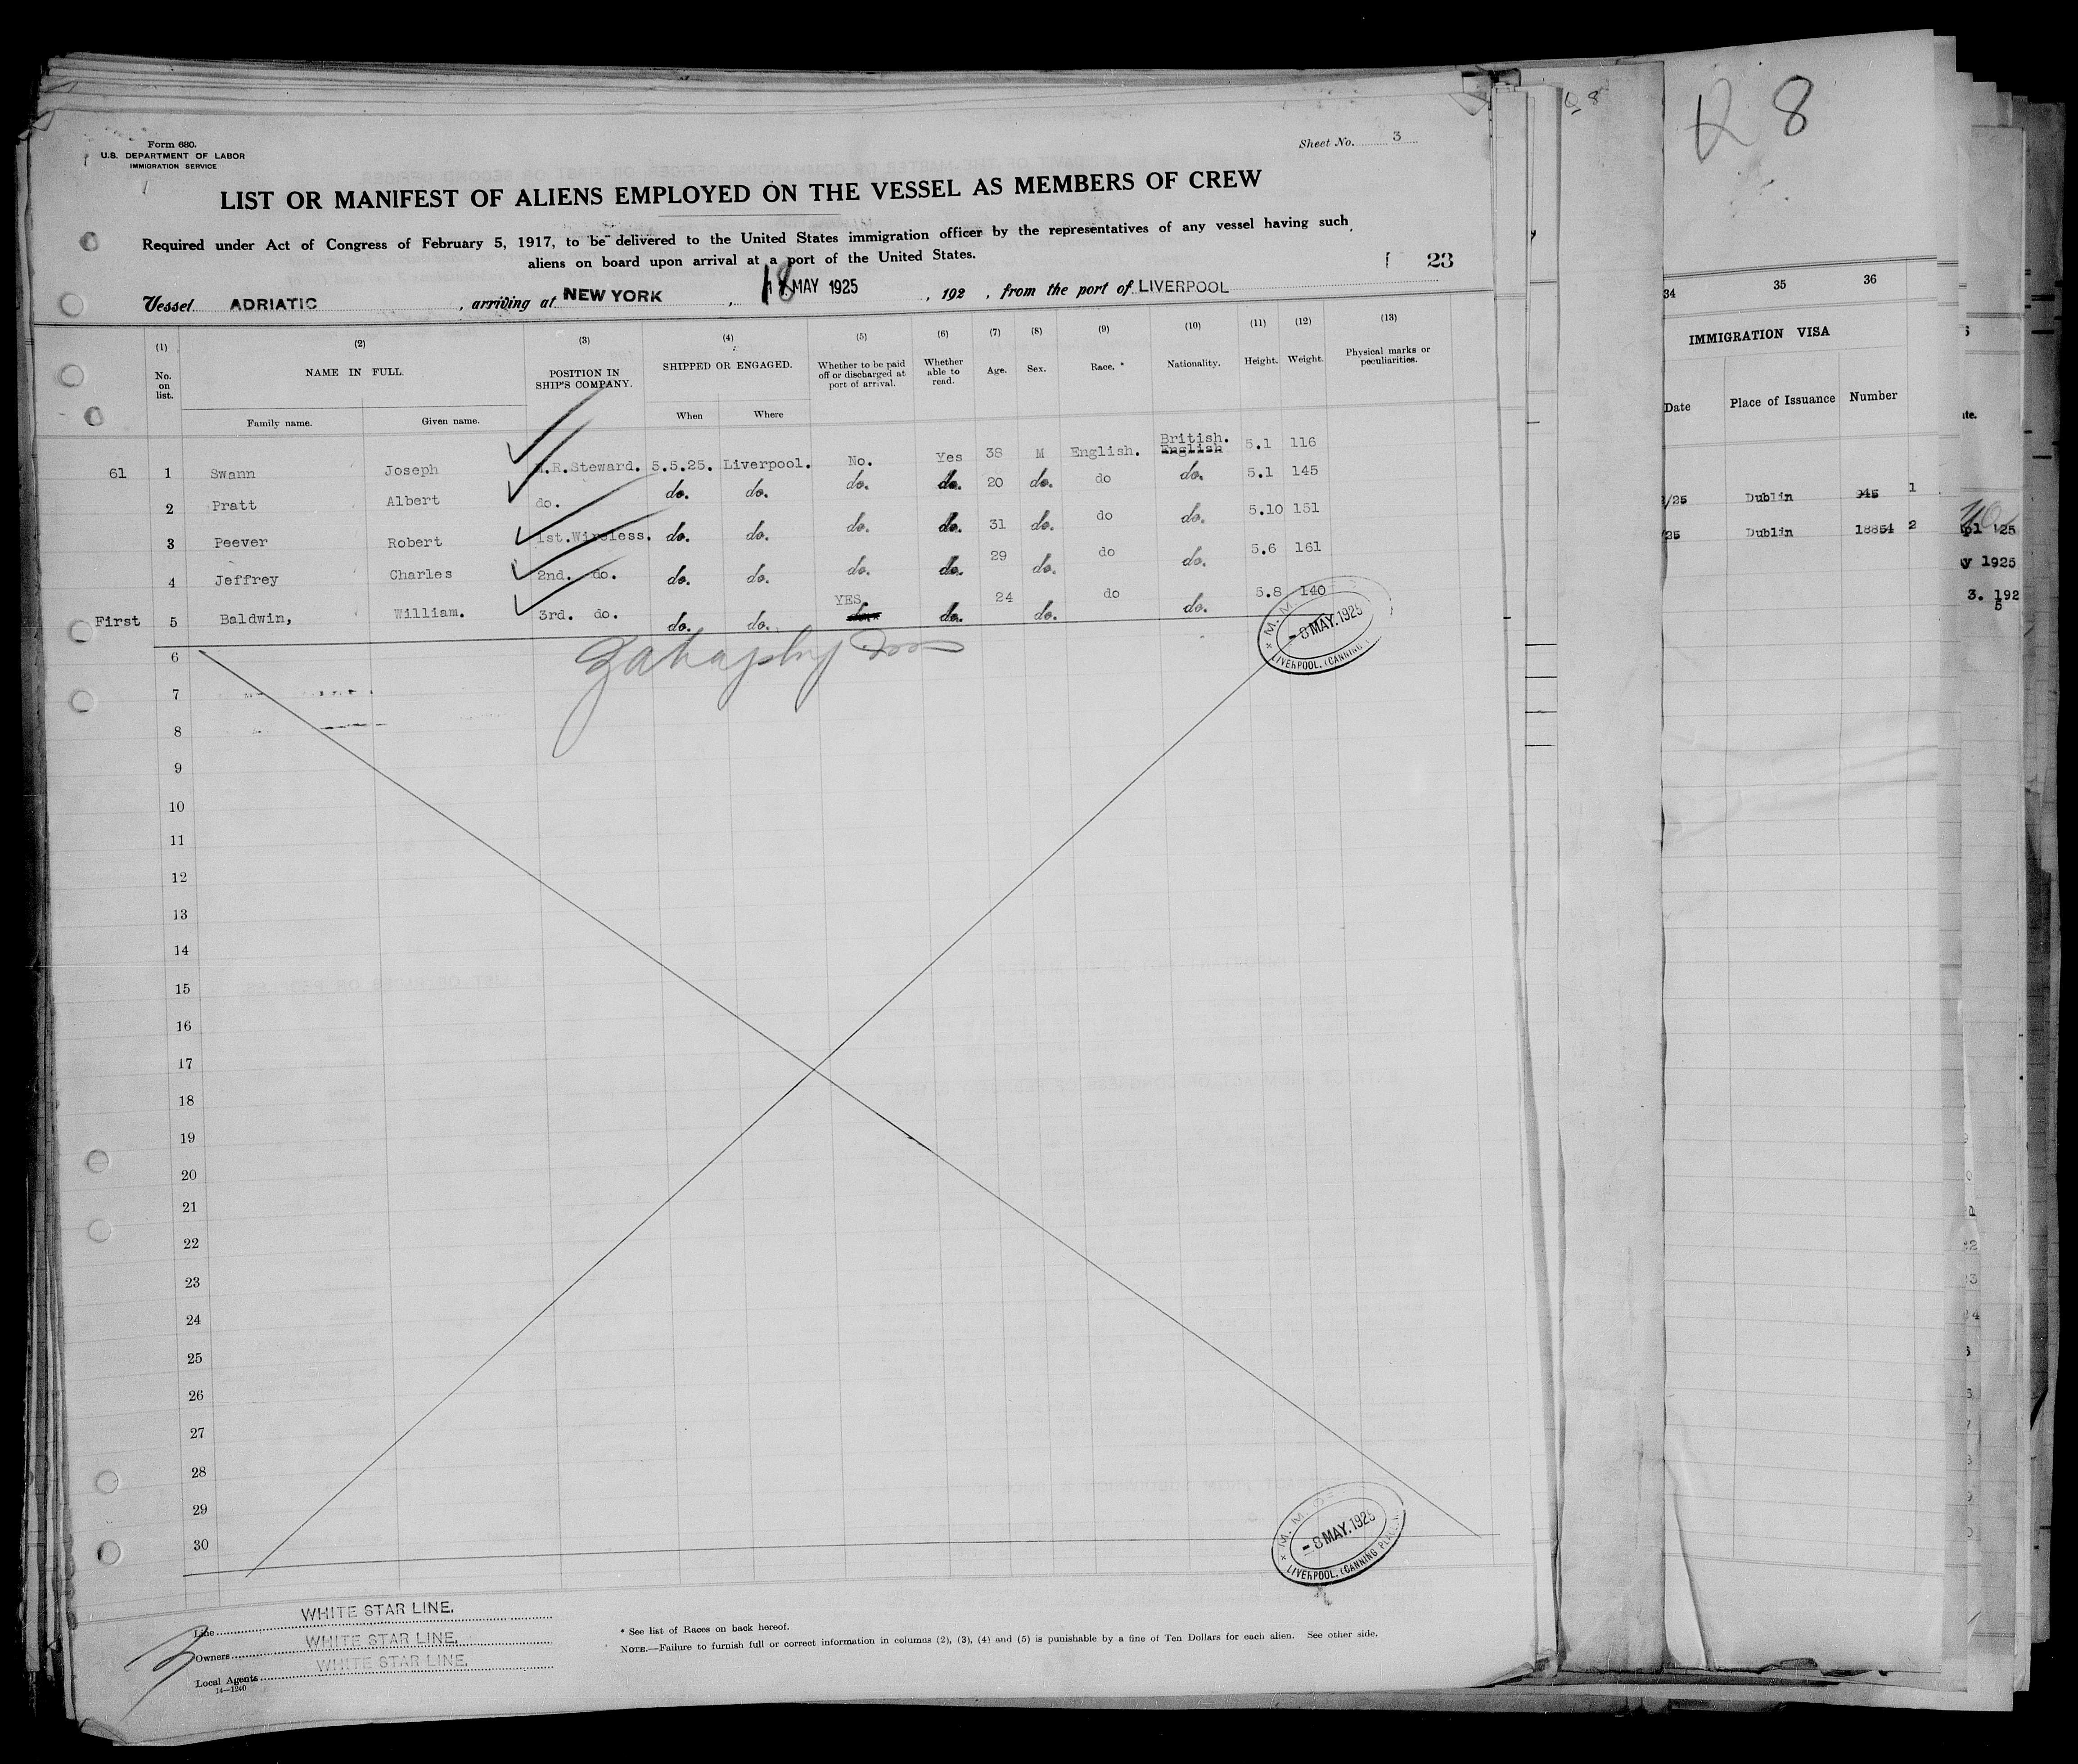 Form 680.
U.S. DEPARTMENT OF LABOR
IMMIGRATION SERVICE
Sheet No. 3
LIST OR MANIFEST OF ALIENS EMPLOYED ON THE VESSEL AS MEMBERS OF CREW
Required under Act of Congress of February 5, 1917, to be delivered to the United States immigration officer by the representatives of any vessel having such
aliens on board upon arrival at a port of the United States.
23
Vessel ADRIATIC , arriving at NEW YORK , 18 MAY 1925 , 192 , from the port of LIVERPOOL
(1) (2) (3) (4) (5) (6) (7) (8) (9) (10) (11) (12) (13)
No. on list. NAME IN FULL. POSITION IN SHIP'S COMPANY. SHIPPED OR ENGAGED. Whether to be paid off or discharged at port of arrival. Whether able to read. Age. Sex. Race. * Nationality. Height. Weight. Physical marks or peculiarities.
Family name. Given name. When Where
61 1 Swann Joseph .R.Steward. 5.5.25. Liverpool. No. Yes 38 M English. British. English 5.1 116
2 Pratt Albert do. do. do. do. do. 20 do. do do. 5.1 145
3 Peever Robert 1st.Wireless. do. do. do. do. 31 do. do do. 5.10 151
4 Jeffrey Charles 2nd. do. do. do. do. do. 29 do. do do. 5.6 161
First 5 Baldwin, William. 3rd. do. do. do. YES do. do. 24 do. do do. 5.8 140
M. M. 8 MAY. 1925 LIVERPOOL. (CANNING
6
7
8
9
10
11
12
13
14
15
16
17
18
19
20
21
22
23
24
25
26
27
28
29
30
M. M. 8 MAY. 1925 LIVERPOOL. (CANNING PLACE
Line WHITE STAR LINE.
Owners WHITE STAR LINE.
Local Agents WHITE STAR LINE.
14—1240
3
* See list of Races on back hereof.
NOTE.—Failure to furnish full or correct information in columns (2), (3), (4) and (5) is punishable by a fine of Ten Dollars for each alien. See other side.
8
R 8
34 35 36
IMMIGRATION VISA
Date Place of Issuance Number
/25 Dublin 945 1
/25 Dublin 18854 2
25
1925
3. 192
5